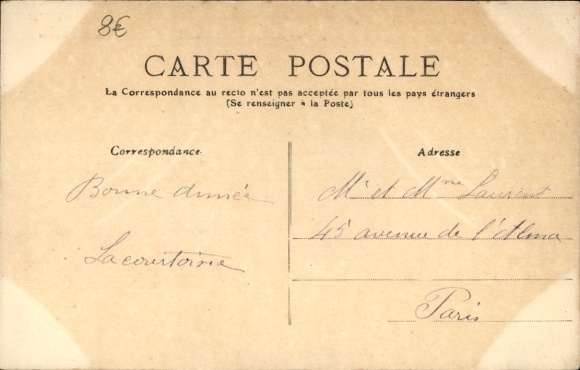 8€
CARTE POSTALE
La Correspondance au recto n'est pas acceptée par tous les pays étrangers
(Se renseigner à la Poste)
Correspondance
Adresse
Bonne année
Lacourtoisie
Mr et Mme Laurent
45 avenue de l'Alma
Paris